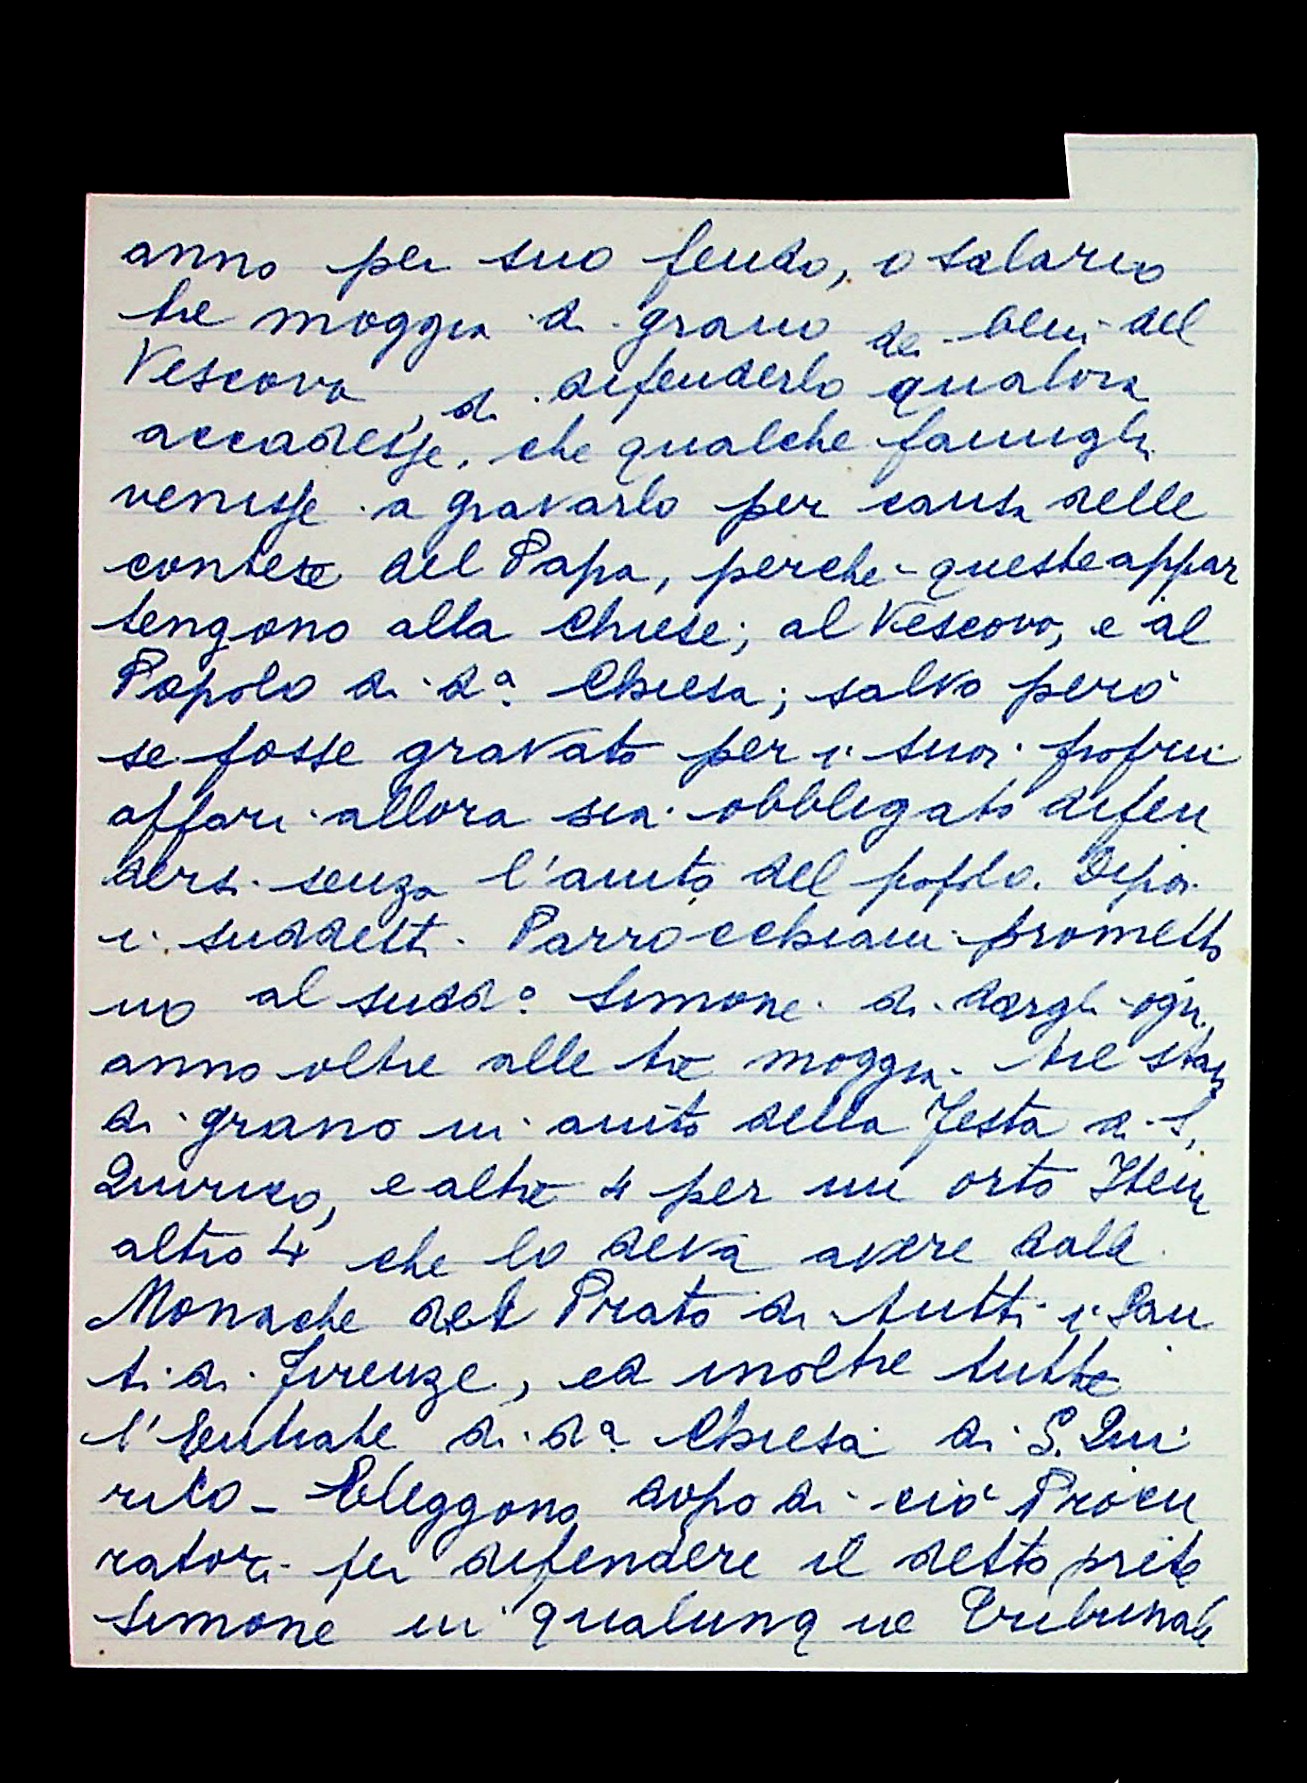 anno per suo feudo, o salario
tre moggia di grano dei beni del
Vescova, di difenderlo qualora
accadesse, che qualche famigli
venisse a gravarlo per causa delle
contese del Papa, perche queste appar
tengono alla Chiese; al Vescovo, e al
Popolo di d.ª Chiesa; salvo però
se fosse gravato per i suoi proprii
affari allora sia obbligato difen
dersi senza l'aiuto del popolo. Dipoi
i suddetti Parrocchiani prometto
no al sudd.º Simone di dargli ogni
anno oltre alle tre moggia tre staia
di grano in aiuto della Festa di S.
Quirico, e altre 4 per un orto Item
altro 4 che lo deva avere dalle
Monache del Prato di tutti i San
ti di Firenze, ed inoltre tutte
l'Entrate di d.ª Chiesa di S. Qui
rico - Eleggono dopo di ciò Procu
ratori per difendere il detto prete
Simone in qualunque Tribunale